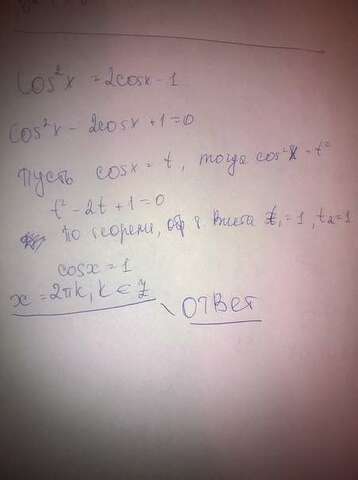 cos²x = 2cosx - 1
cos²x - 2cosx + 1 = 0
Пусть cosx = t, тогда cos²x = t²
t² - 2t + 1 = 0
По теореме, обр т. Виета t₁ = 1, t₂ = 1
cosx = 1
x = 2πk, k ∈ Z
ОТВЕТ